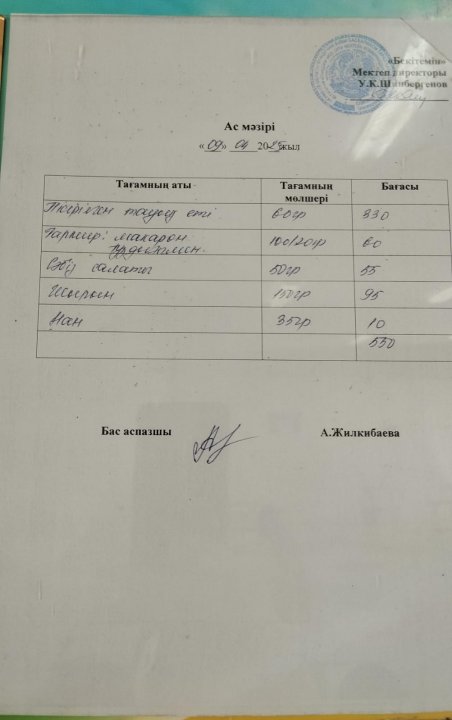 «Бекітемін»
Мектеп директоры
У.К.Шинбергенов
Ас мәзірі
«09» 04 2025жыл
Тағамның аты Тағамның мөлшері Бағасы
Пісірілген тауық еті 60гр 330
Гарнир: макарон 100/20гр 60
Сәбіз салаты 50гр 55
Шырын 150гр 95
Нан 35гр 10
530
Бас аспазшы А.Жилкибаева